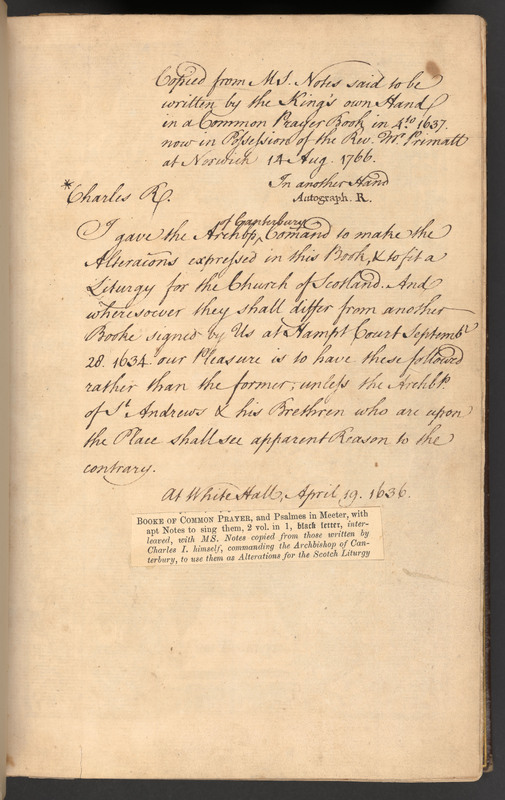 Copied from MS. Notes said to be
written by the King's own Hand
in a Common Prayer Book in 4to. 1637.
now in Possession of the Rev. Mr. Primatt
at Norwich 14 Aug. 1766.
In another Hand
Autograph. R.
*Charles R.
of Canterbury
I gave the Archbp. ‸ Comand to make the
Alteracons expressed in this Book, & to fit a
Liturgy for the Church of Scotland. And
wheresoever they shall differ from another
Booke signed by Us at Hampt Court Septembr
28. 1634. our Pleasure is to have these followed
rather than the former; unless the Archbp.
of St. Andrews & his Brethren who are upon
the Place shall see apparent Reason to the
contrary.
At White Hall, April, 19. 1636.
BOOKE OF COMMON PRAYER, and Psalmes in Meeter, with
apt Notes to sing them, 2 vol. in 1, black letter, inter-
leaved, with MS. Notes copied from those written by
Charles I. himself, commanding the Archbishop of Can-
terbury, to use them as Alterations for the Scotch Liturgy